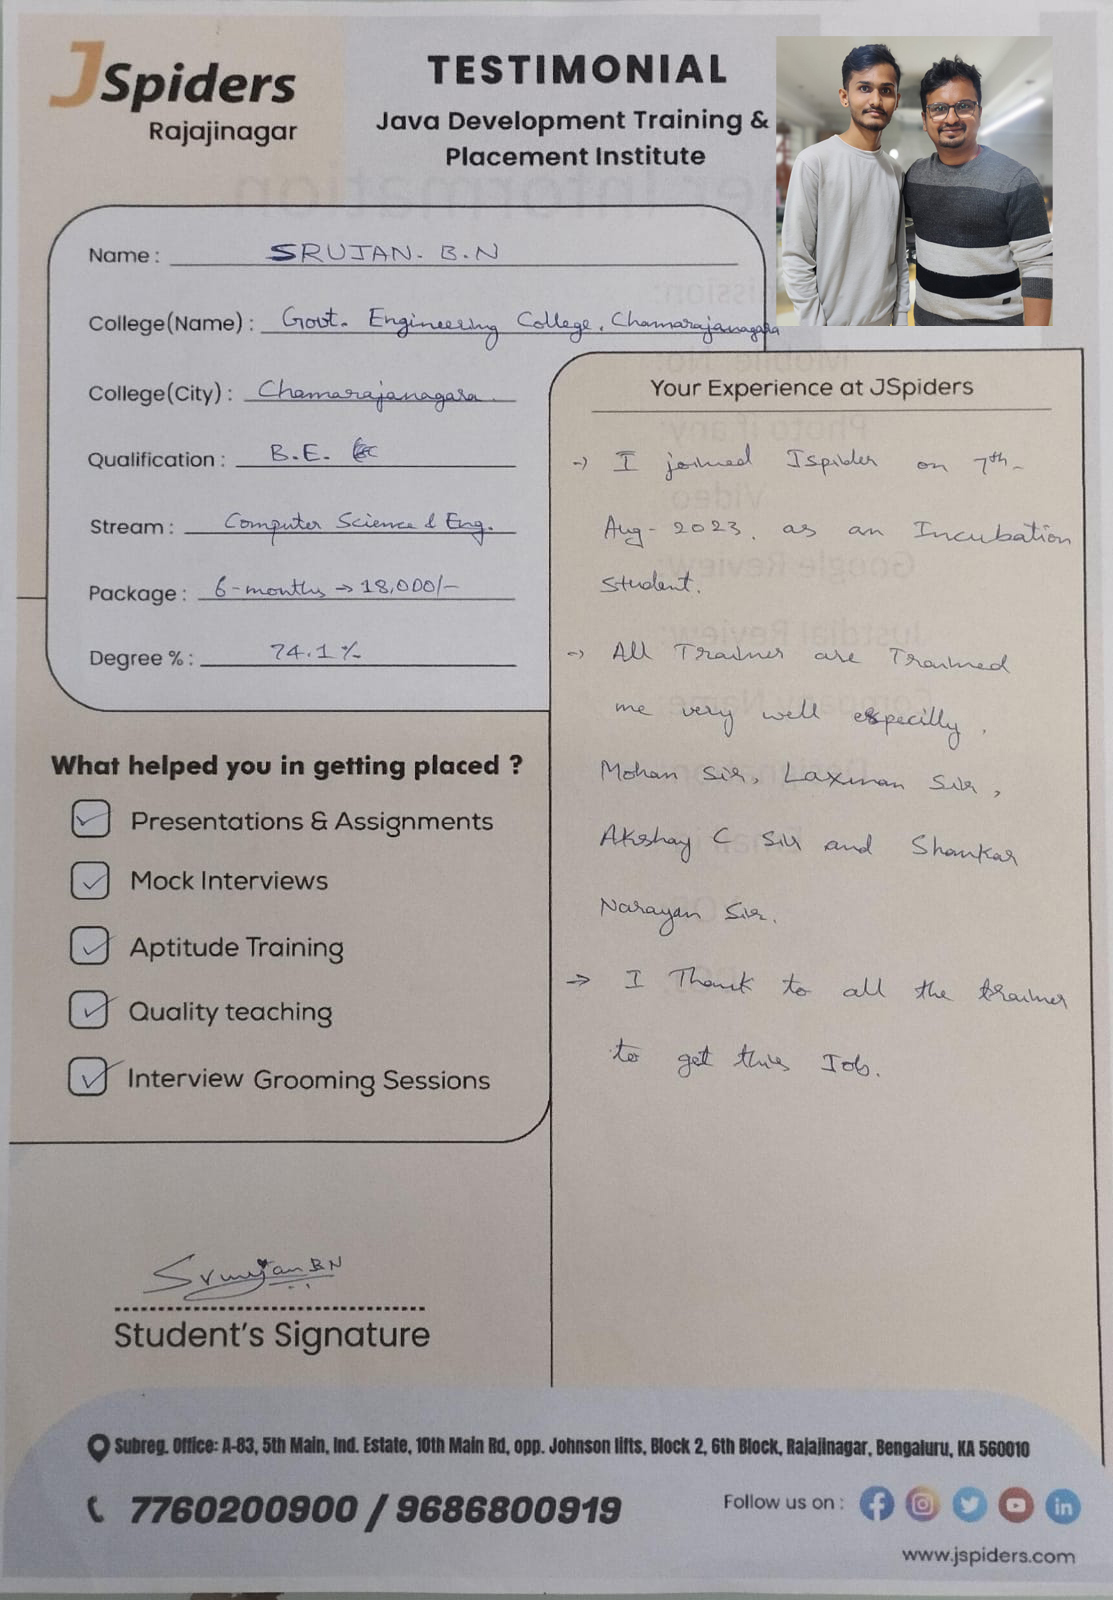 JSpiders
Rajajinagar
TESTIMONIAL
Java Development Training &
Placement Institute
Name : SRUJAN. B.N
College(Name) : Govt. Engineering College, Chamarajanagara
College(City) : Chamarajanagara
Qualification : B.E.
Stream : Computer Science & Eng.
Package : 6-months → 18,000/-
Degree % : 74.1%
What helped you in getting placed ?
Presentations & Assignments
Mock Interviews
Aptitude Training
Quality teaching
Interview Grooming Sessions
Your Experience at JSpiders
→ I joined Jspider on 7th-
Aug-2023, as an Incubation
Student.
→ All Trainer are Trained
me very well especilly,
Mohan Sir, Laxman Sir,
Akshay C Sir and Shankar
Narayan Sir.
→ I Thank to all the trainer
to get this Job.
Srunjan BN
Student's Signature
Subreg. Office: A-83, 5th Main, Ind. Estate, 10th Main Rd, opp. Johnson lifts, Block 2, 6th Block, Rajajinagar, Bengaluru, KA 560010
7760200900 / 9686800919
Follow us on :
www.jspiders.com